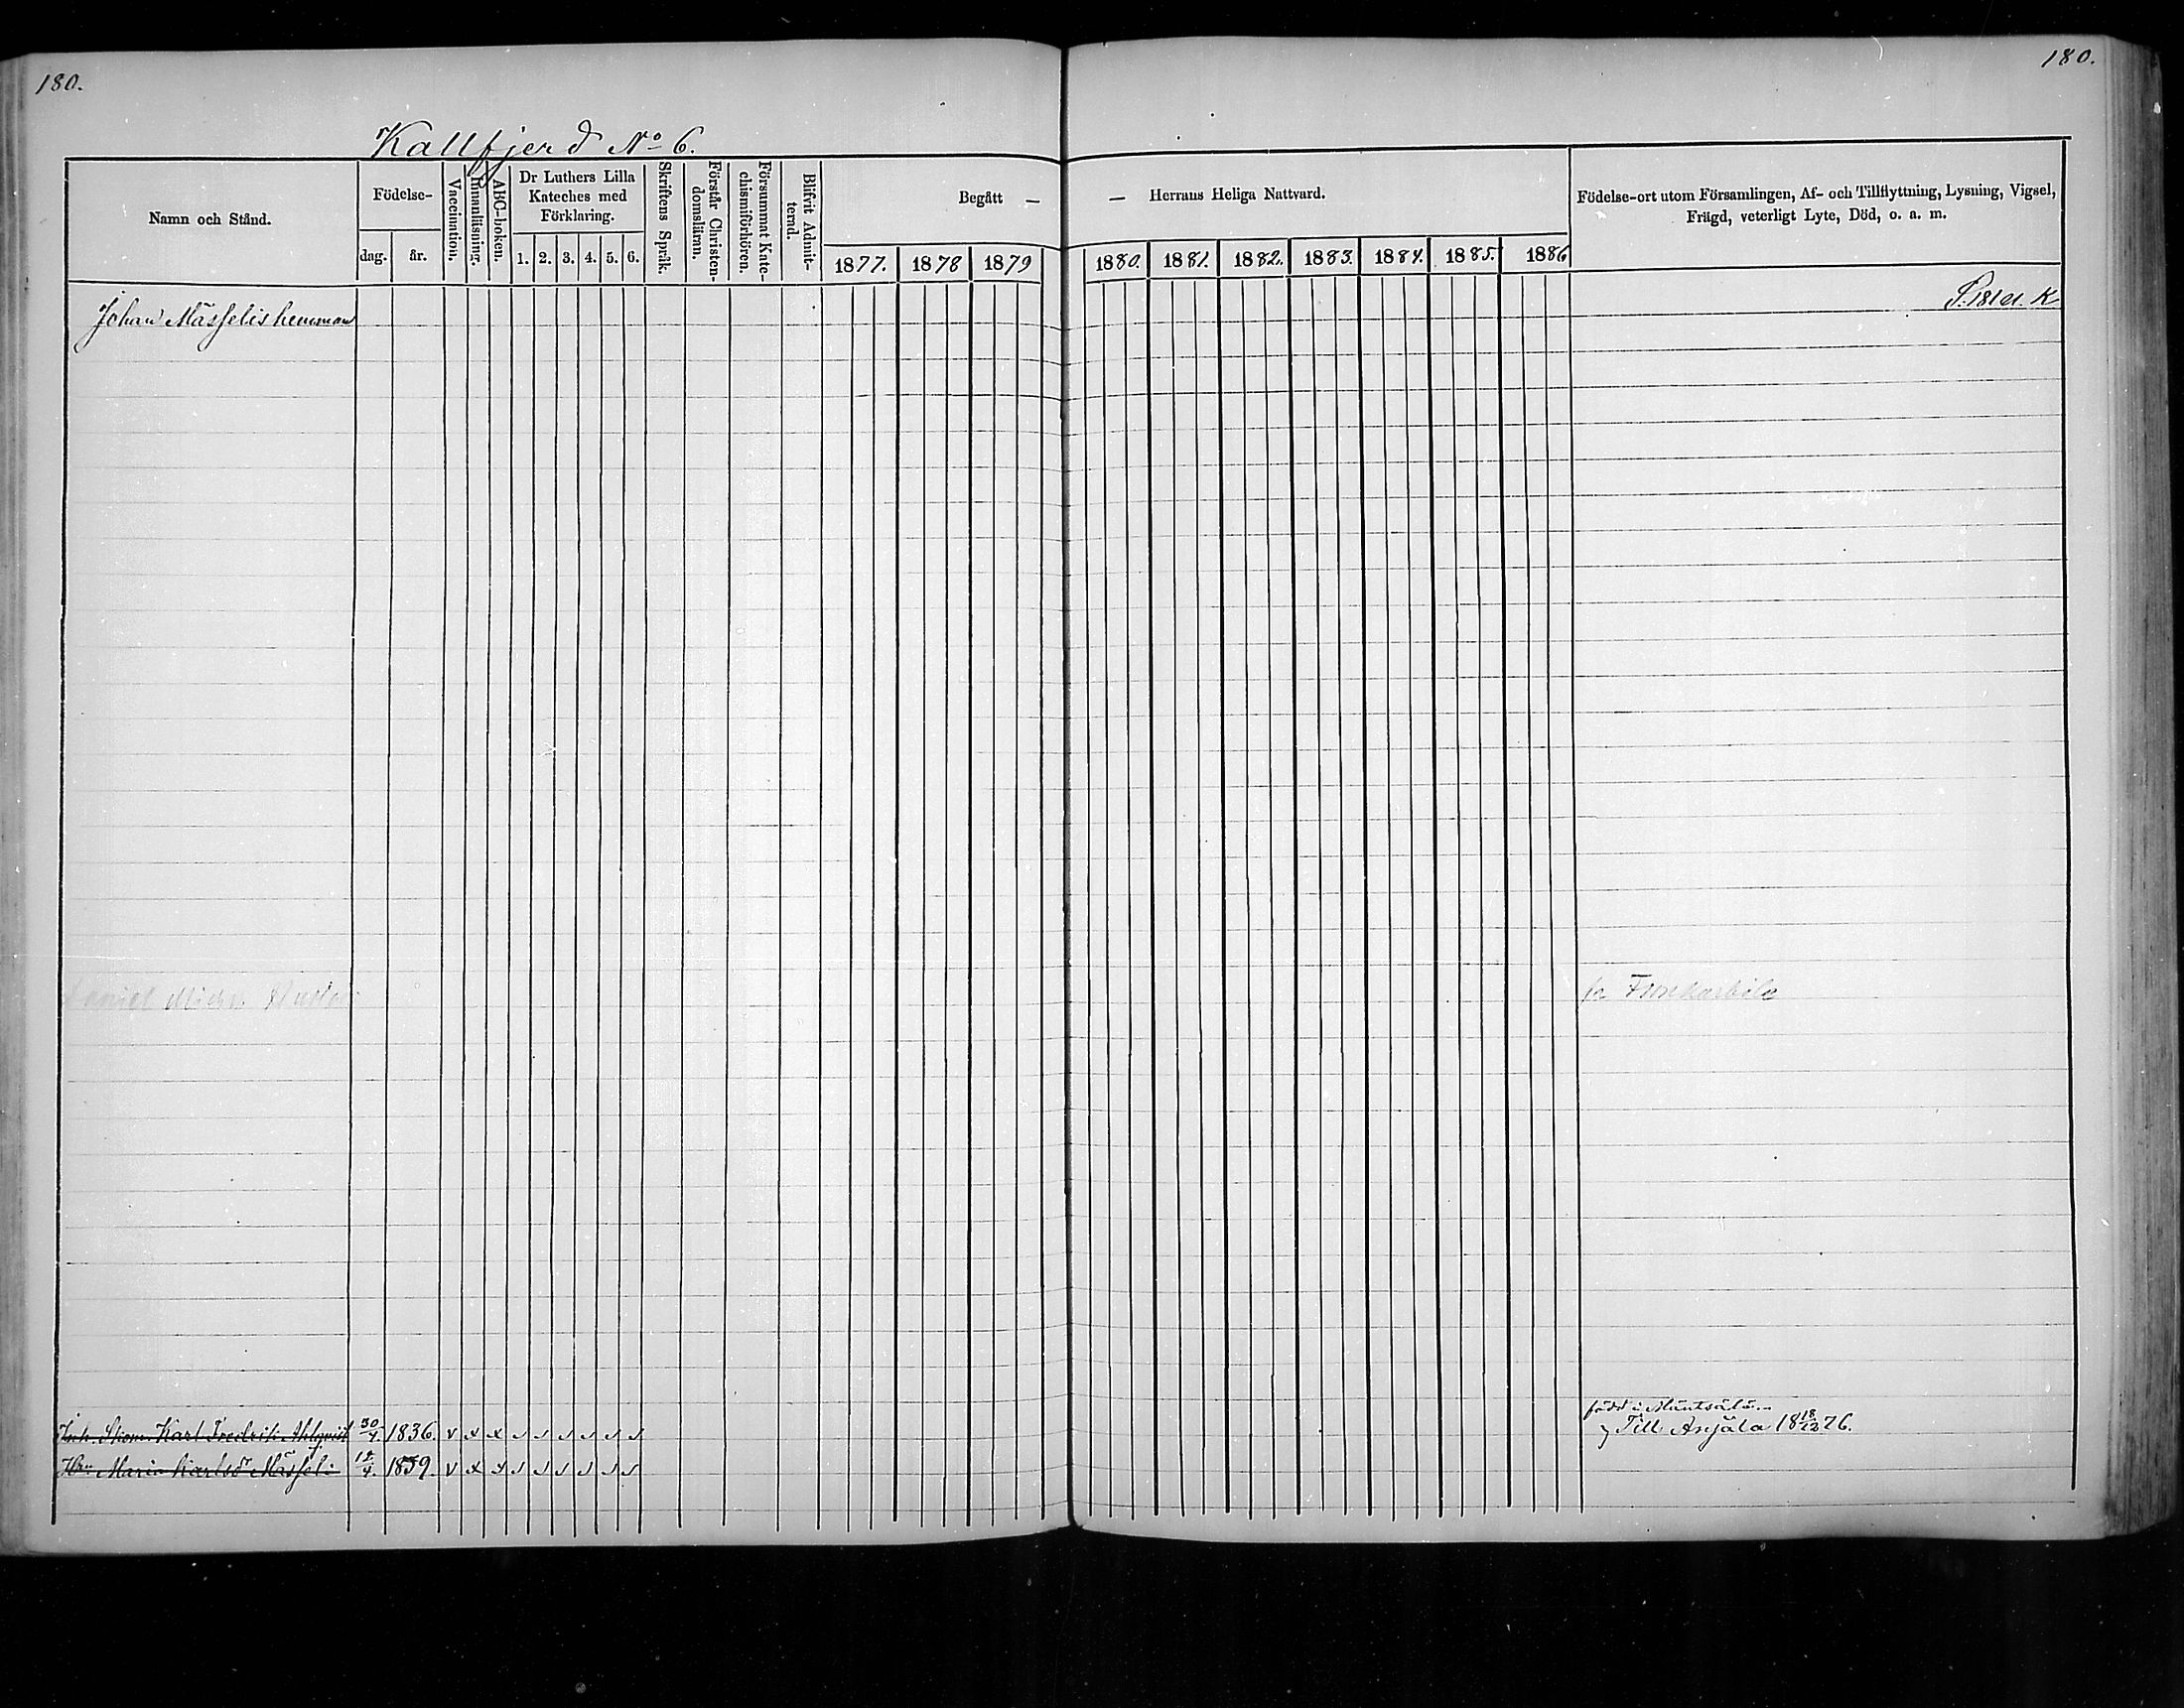 180.
180.
Kallfjerd No 6.
Namn och Stånd.
Födelse-
dag.
år.
Vaccination.
Innanläsning.
ABC-boken.
Dr Luthers Lilla
Kateches med
Förklaring.
1. 2. 3. 4. 5. 6.
Skriftens Språk.
Förstår Christen-
domsläran.
Försummat Kate-
chismiförhören.
Blifvit Admit-
terad.
Begått —
— Herrans Heliga Nattvard.
1877. 1878 1879
1880. 1881. 1882. 1883. 1884. 1885. 1886
Födelse-ort utom Församlingen, Af- och Tillflyttning, Lysning, Vigsel,
Frägd, veterligt Lyte, Död, o. a. m.
Johan Mässelis hemman
P. 181
Daniel
född i Mäntsälä
Karl Fredrik Ahlqvist 30/4. 1836.
Till Anjala 18 18/12 76.
Maria Karlsdr Mässeli 15/4. 1859.